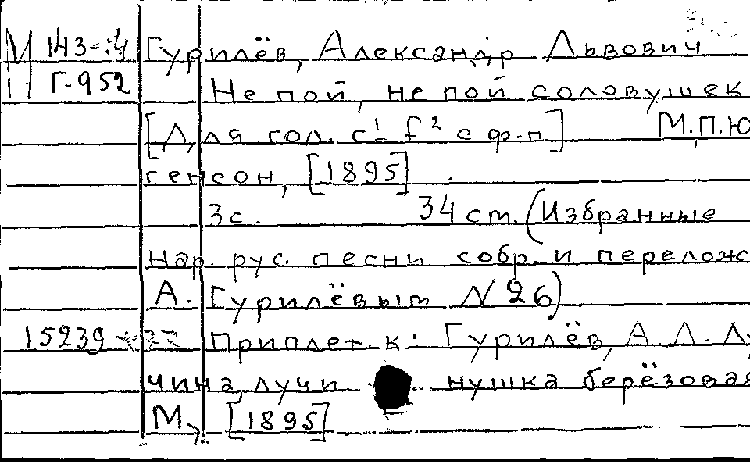 М 143-4 Гурилёв, Александр Львович
Г-952 Не пой, не пой соловушек
[Для гол. c¹ f² с ф-п.] М.П.Ю
генсон, [1895].
3с. 34 см. (Избранные
нар. рус. песни собр. и перелож
А. Гурилёвым N 26)
15239 Приплет к: Гурилёв, А.Л. Лу
чина, лучи нушка берёзовая
М., [1895]